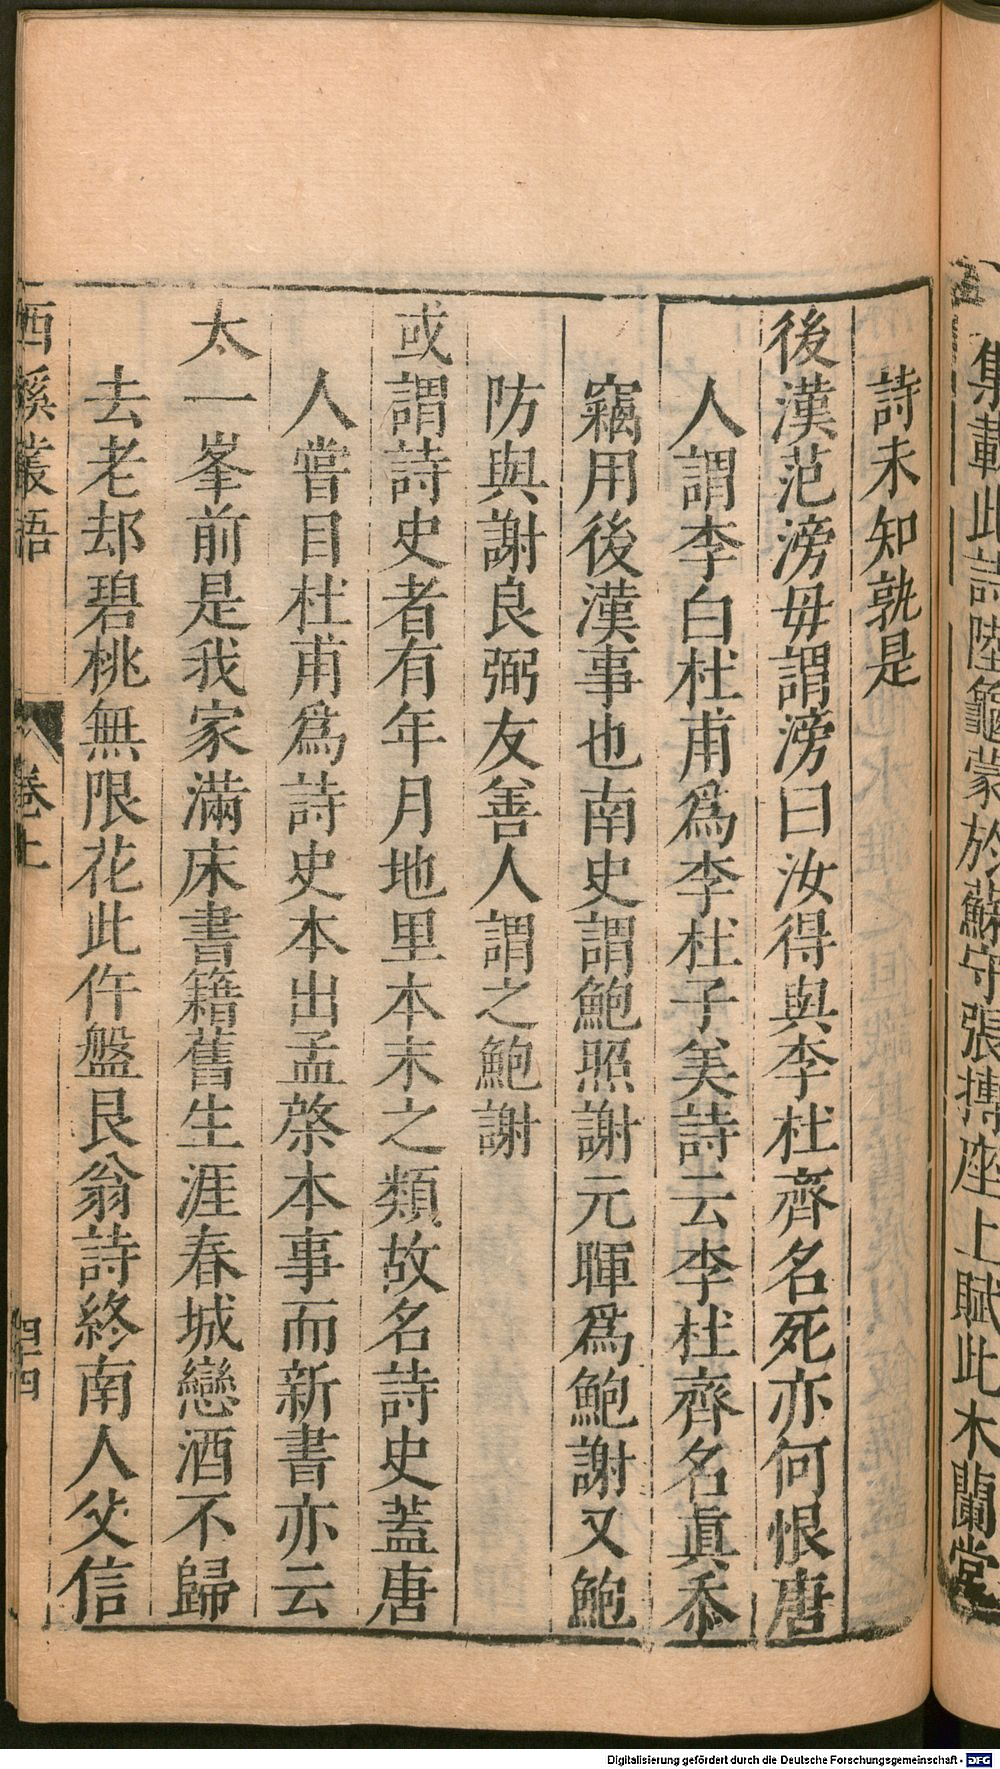 集載此詩陸龜蒙於蘇守張摶座上賦此木蘭堂
詩未知孰是
後漢范滂毋謂滂曰汝得與李杜齊名死亦何恨唐
人謂李白杜甫爲李杜子美詩云李杜齊名眞忝
竊用後漢事也南史謂鮑照謝元暉爲鮑謝又鮑
防與謝良弼友善人謂之鮑謝
或謂詩史者有年月地里本末之類故名詩史蓋唐
人嘗目杜甫爲詩史本出孟棨本事而新書亦云
太一峯前是我家滿床書籍舊生涯春城戀酒不歸
去老却碧桃無限花此仵盤艮翁詩終南人父信
西溪叢語
卷上
四十四
Digitalisierung gefördert durch die Deutsche Forschungsgemeinschaft - DFG